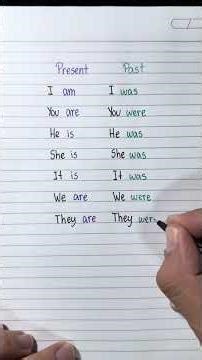 Present Past
I am I was
You are You were
He is He was
She is She was
It is It was
We are We were
They are They wer